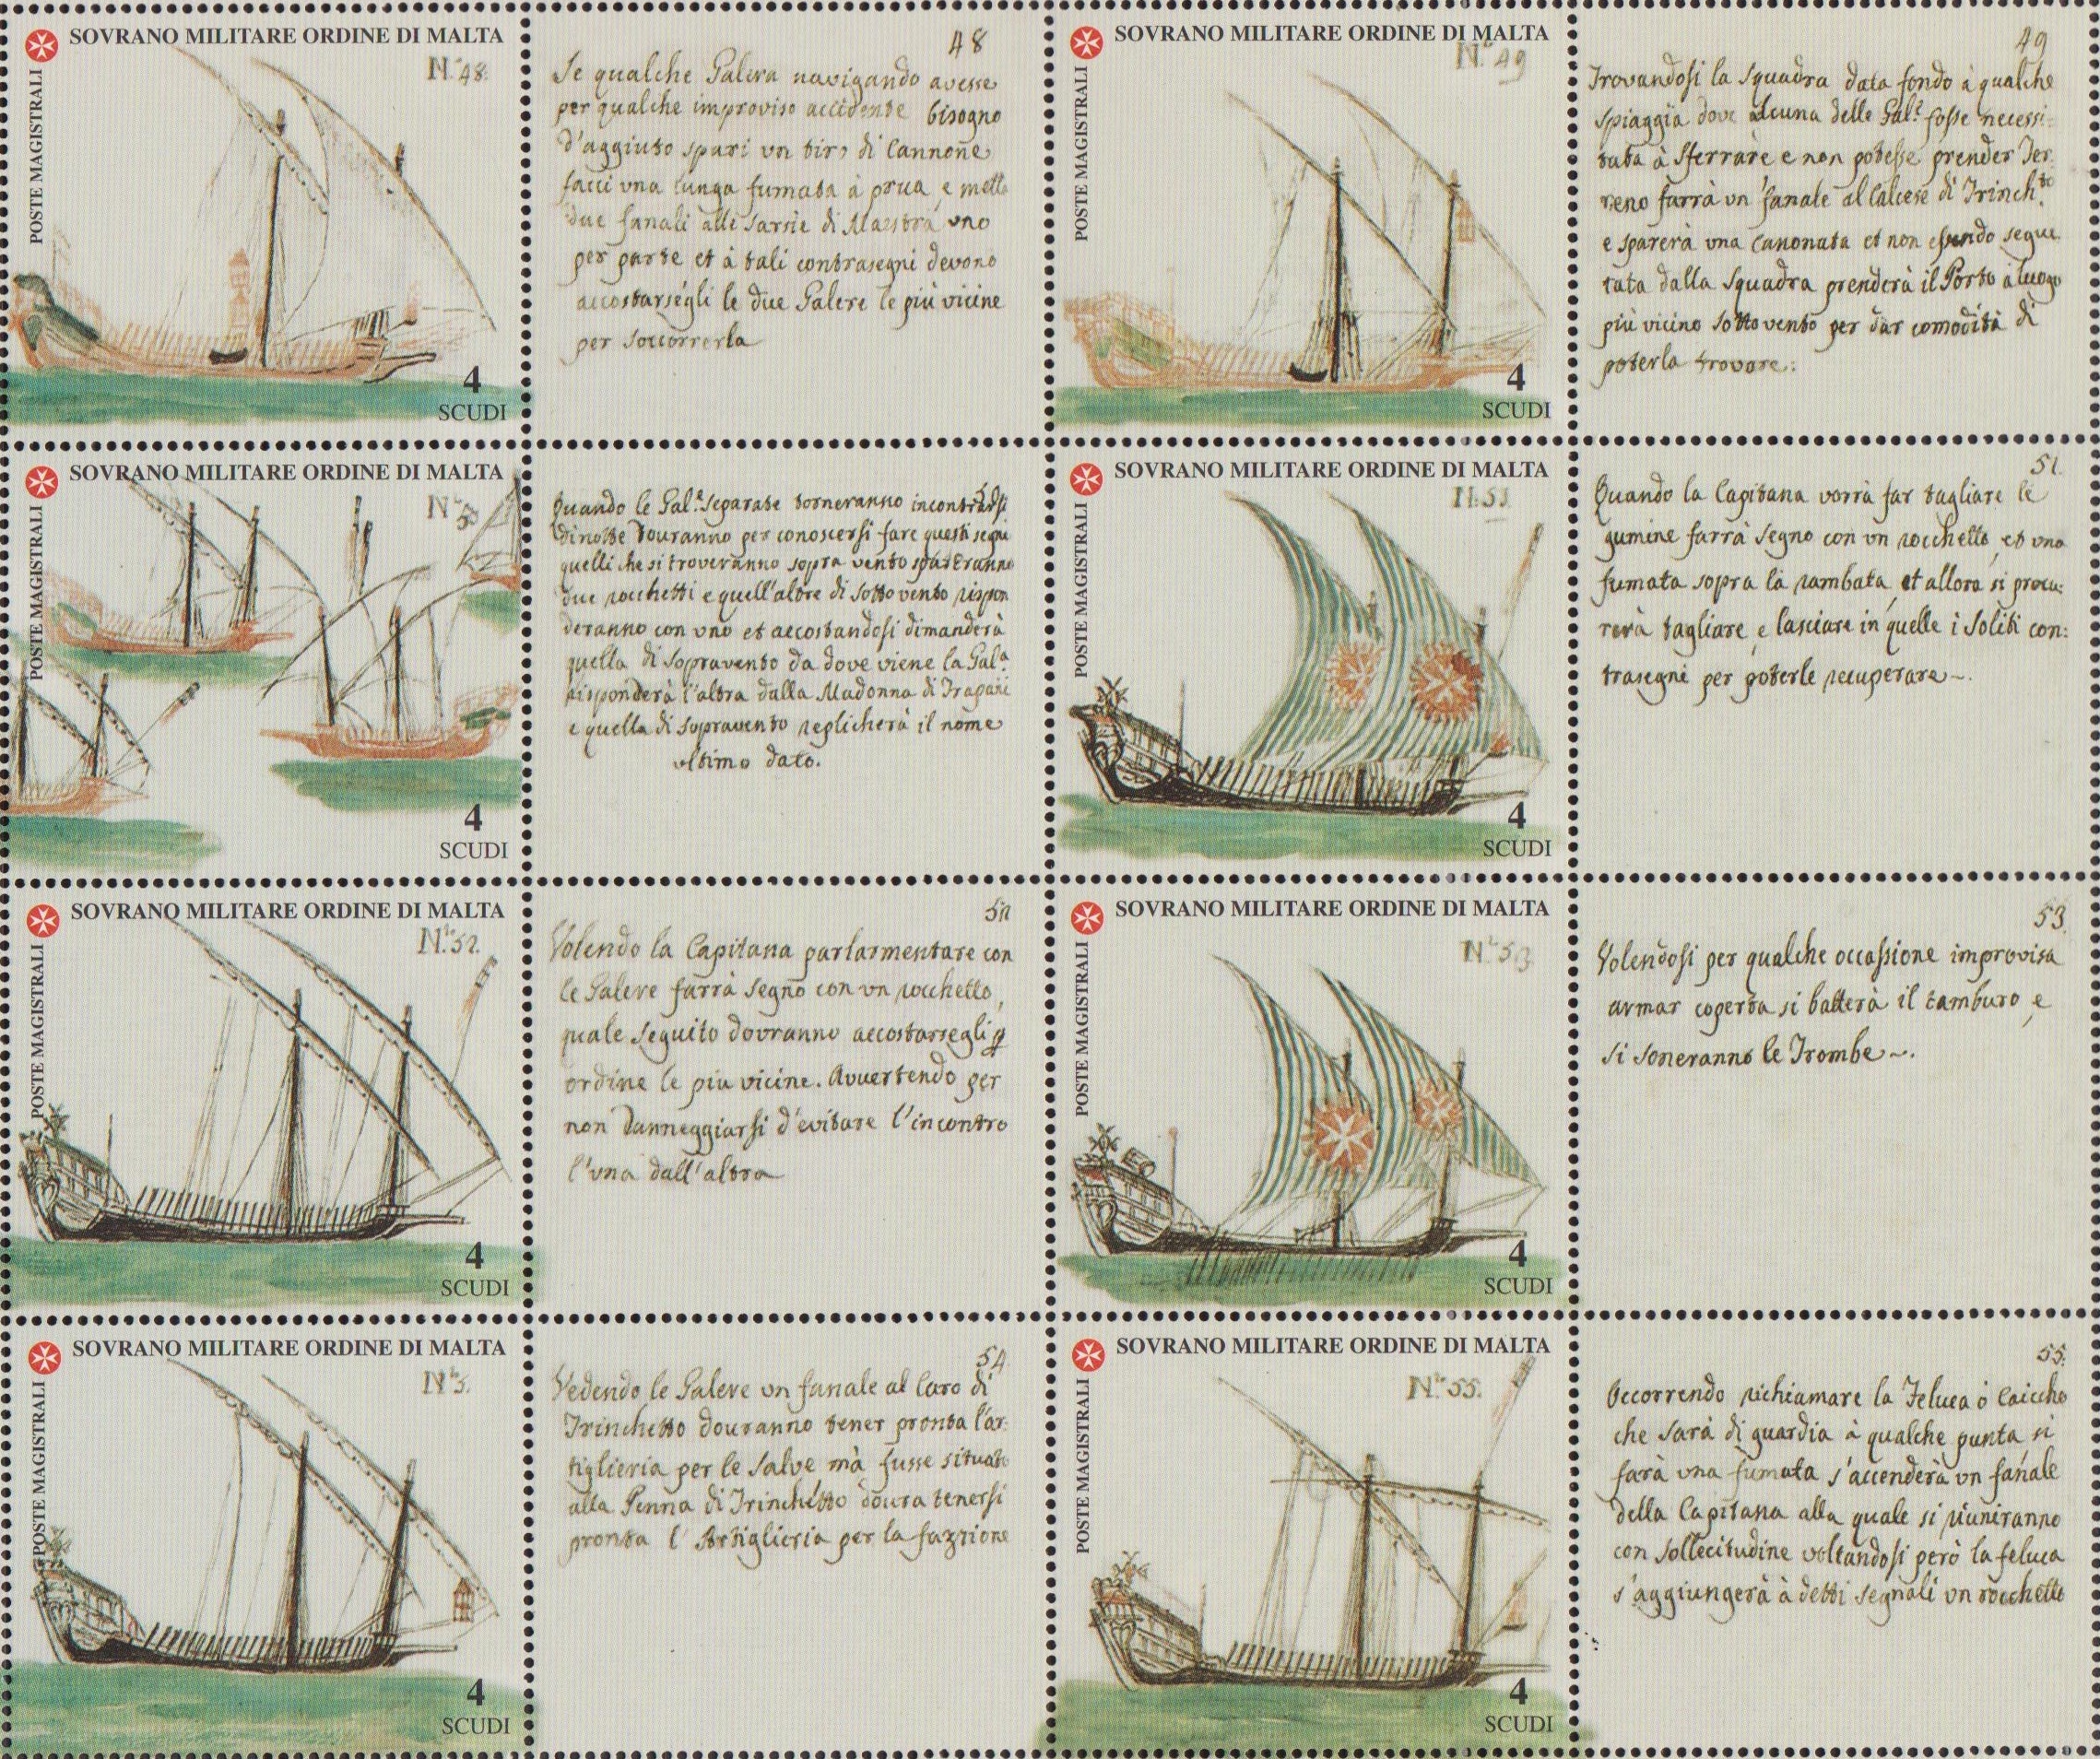 SOVRANO MILITARE ORDINE DI MALTA
POSTE MAGISTRALI
N.º 48.
4
SCUDI
48
Se qualche Galera navigando avesse
per qualche improviso accidente bisogno
d'aggiuto spari vn tiro di Cannone
facci vna lunga fumata à prua, e metta
due fanali alle Sarsie di Maestra vno
per parte et à tali contrasegni devono
accostarsegli le due Galere le più vicine
per soccorrerla
SOVRANO MILITARE ORDINE DI MALTA
POSTE MAGISTRALI
N.º 49
4
SCUDI
49
Trovandosi la Squadra data fondo à qualche
spiaggia dove alcuna delle Gal.e fosse necessi-
tata à sferrare e non potesse prender Ter
reno farrà vn fanale al Calcese di Trinch.to
e sparerà vna Canonata et non essendo segui
tata dalla Squadra prenderà il Porto ò luogo
più vicino sottovento per dar comodità di
poterla trovare:
SOVRANO MILITARE ORDINE DI MALTA
POSTE MAGISTRALI
N.º 50
4
SCUDI
Quando le Gal.e separate torneranno incontrarsi
di notte douranno per conoscersi fare questi segni
quelli che si troveranno sopra vento spareranno
due rocchetti e quell'altre di sotto vento rispon
deranno con vno et accostandosi dimanderà
quella di sopravento da dove viene la Gal.a
risponderà l'altra dalla Madonna di Trapani
e quella di sopravento replicherà il nome
vltimo dato.
SOVRANO MILITARE ORDINE DI MALTA
POSTE MAGISTRALI
N.º 51
4
SCUDI
51.
Quando la Capitana vorrà far tagliare le
gumine farrà segno con vn rocchetto, et vna
fumata sopra la rambata, et allora si procu:
rerà tagliare, e lasciare in quelle i soliti con:
trasegni per poterle recuperare~.
SOVRANO MILITARE ORDINE DI MALTA
POSTE MAGISTRALI
N.º 52.
4
SCUDI
52
Volendo la Capitana parlarmentare con
le Galere farrà segno con vn rocchetto,
quale seguito dovranno accostarsegli p
ordine le piu vicine. Avvertendo per
non danneggiarsi d'evitare l'incontro
l'vna dall'altra
SOVRANO MILITARE ORDINE DI MALTA
POSTE MAGISTRALI
N.º 53
4
SCUDI
53.
Volendosi per qualche occassione improvisa
armar coperta si batterà il tamburo, e
si soneranno le Trombe~.
SOVRANO MILITARE ORDINE DI MALTA
POSTE MAGISTRALI
N.º 5.
4
SCUDI
54
Vedendo le Galere vn fanale al Caro di
Trinchetto douranno tener pronta l'ar:
tiglieria per le salve mà fusse situato
alla Penna di Trinchetto doura tenersi
pronta l'Artiglieria per la fazzione
SOVRANO MILITARE ORDINE DI MALTA
POSTE MAGISTRALI
N.º 55.
4
SCUDI
55.
Occorrendo richiamare la Feluca ò Caiccho
che sarà di guardia à qualche punta si
farà vna fumata s'accenderà vn fanale
della Capitana alla quale si riuniranno
con sollecitudine voltandosi però la feluca
s'aggiungerà à detti segnali vn rocchetto